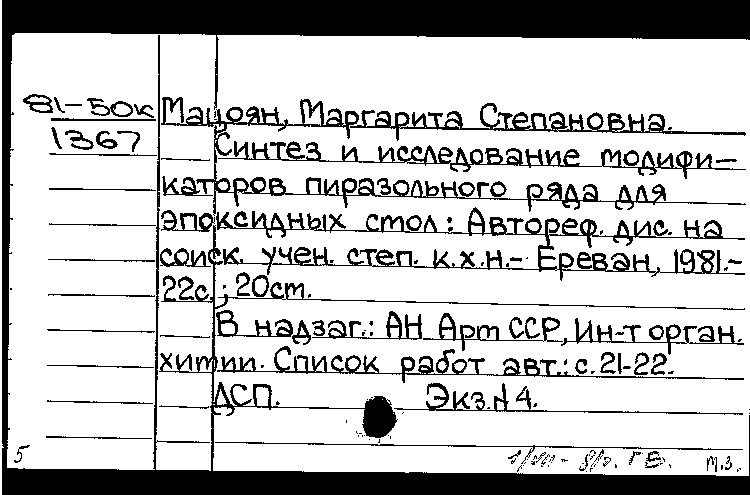 81-50к Мацоян, Маргарита Степановна.
1367 Синтез и исследование модифи-
каторов пиразольного ряда для
эпоксидных стол: Автореф. дис. на
соиск. учен. степ. к.х.н.- Ереван, 1981.-
22с.; 20см.
В надзаг.: АН Арм ССР, Ин-т орган.
химии. Список работ авт.: с. 21-22.
ДСП. Экз.№4.
5 М.З.